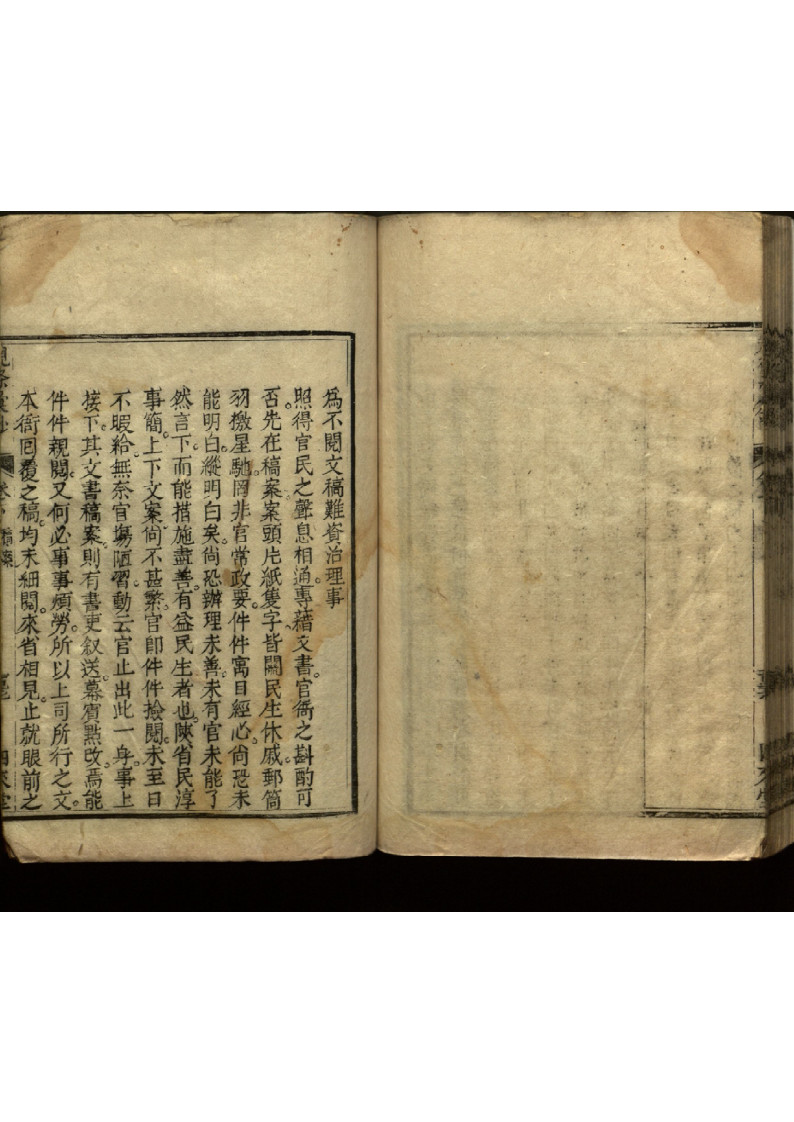 為不閱文稿難資治理事
照得官民之聲息相通。專藉文書。官衙之斟酌可
否。先在稿案。案頭片紙隻字。皆關民生休戚。郵筒
羽檄星馳。罔非官常政要。件件寓目經心。尚恐未
能明白。縱明白矣。尚恐辦理未善。未有官未能了
然言下。而能措施盡善。有益民生者也。陝省民淳
事簡。上下文案。尚不甚繁。官即件件撿閱。未至日
不暇給。無奈官塲陋習。動云官止出此一身。事上
接下。其文書稿案。則有書吏叙送。幕賓點改。焉能
件件親閱。又何必事事煩勞。所以上司所行之文。
本衙囘覆之稿。均未細閱。來省相見。止就眼前之